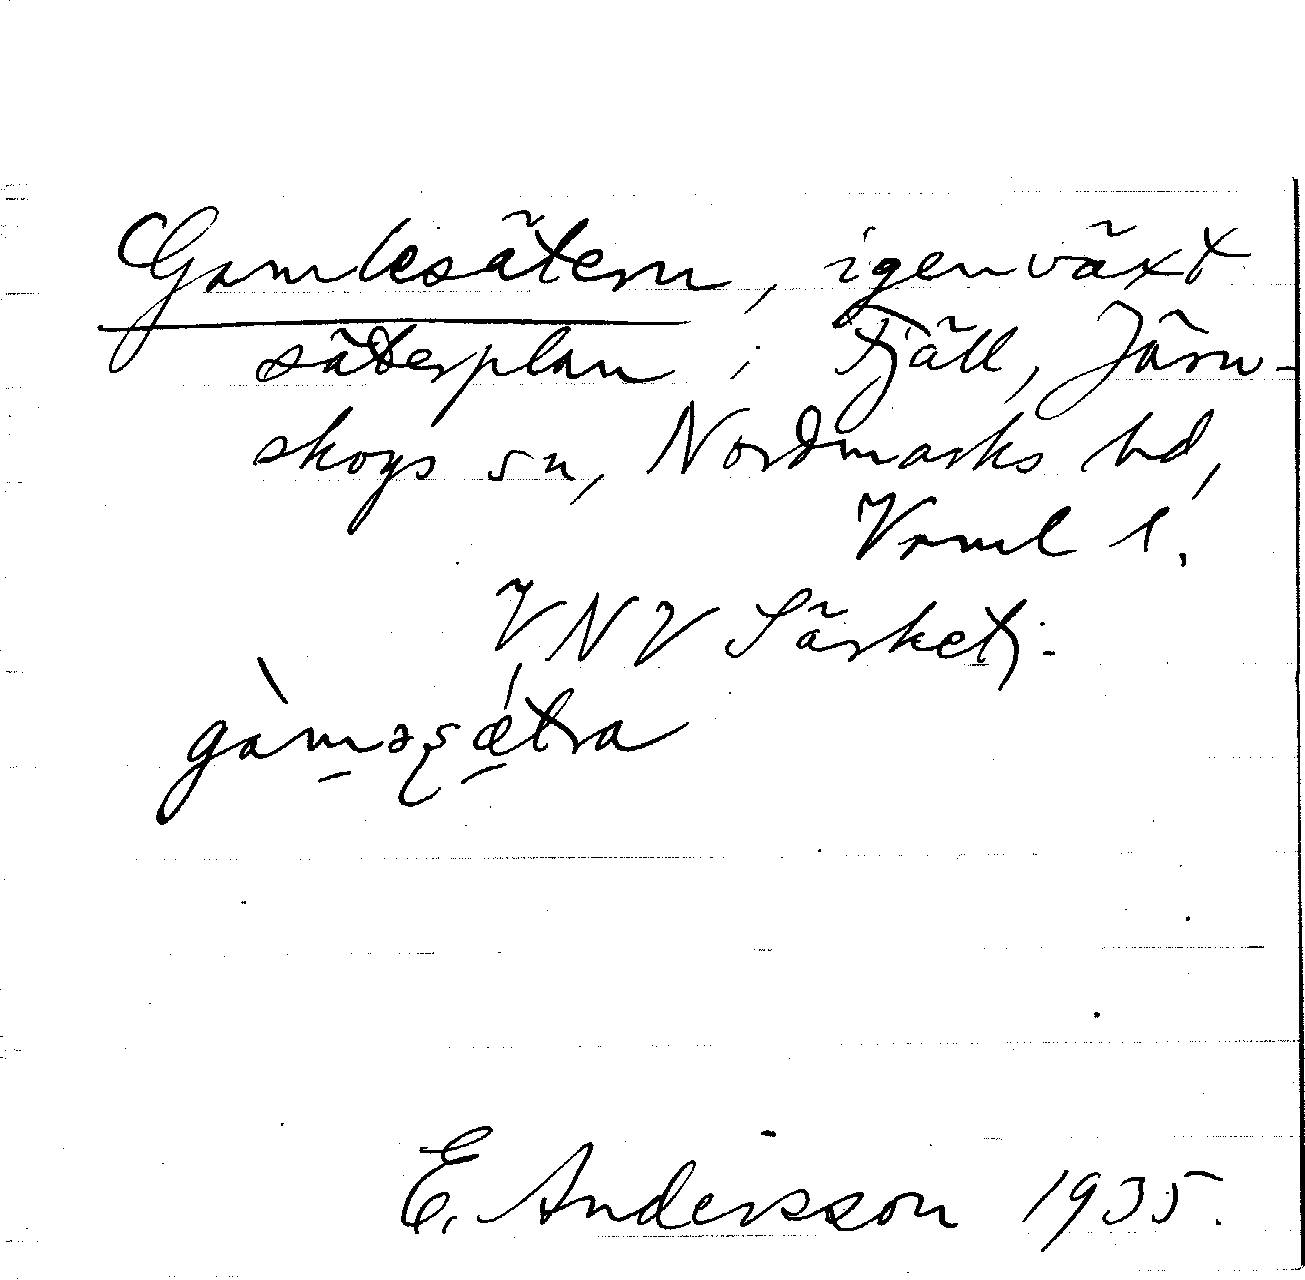 Gamlesätern, igenväxt
säterplan i Fjäll, Järn-
skogs sn, Nordmarks hd,
Vrml l.
VNV Särketj.
gàməsǽtra
E. Andersson 1935.